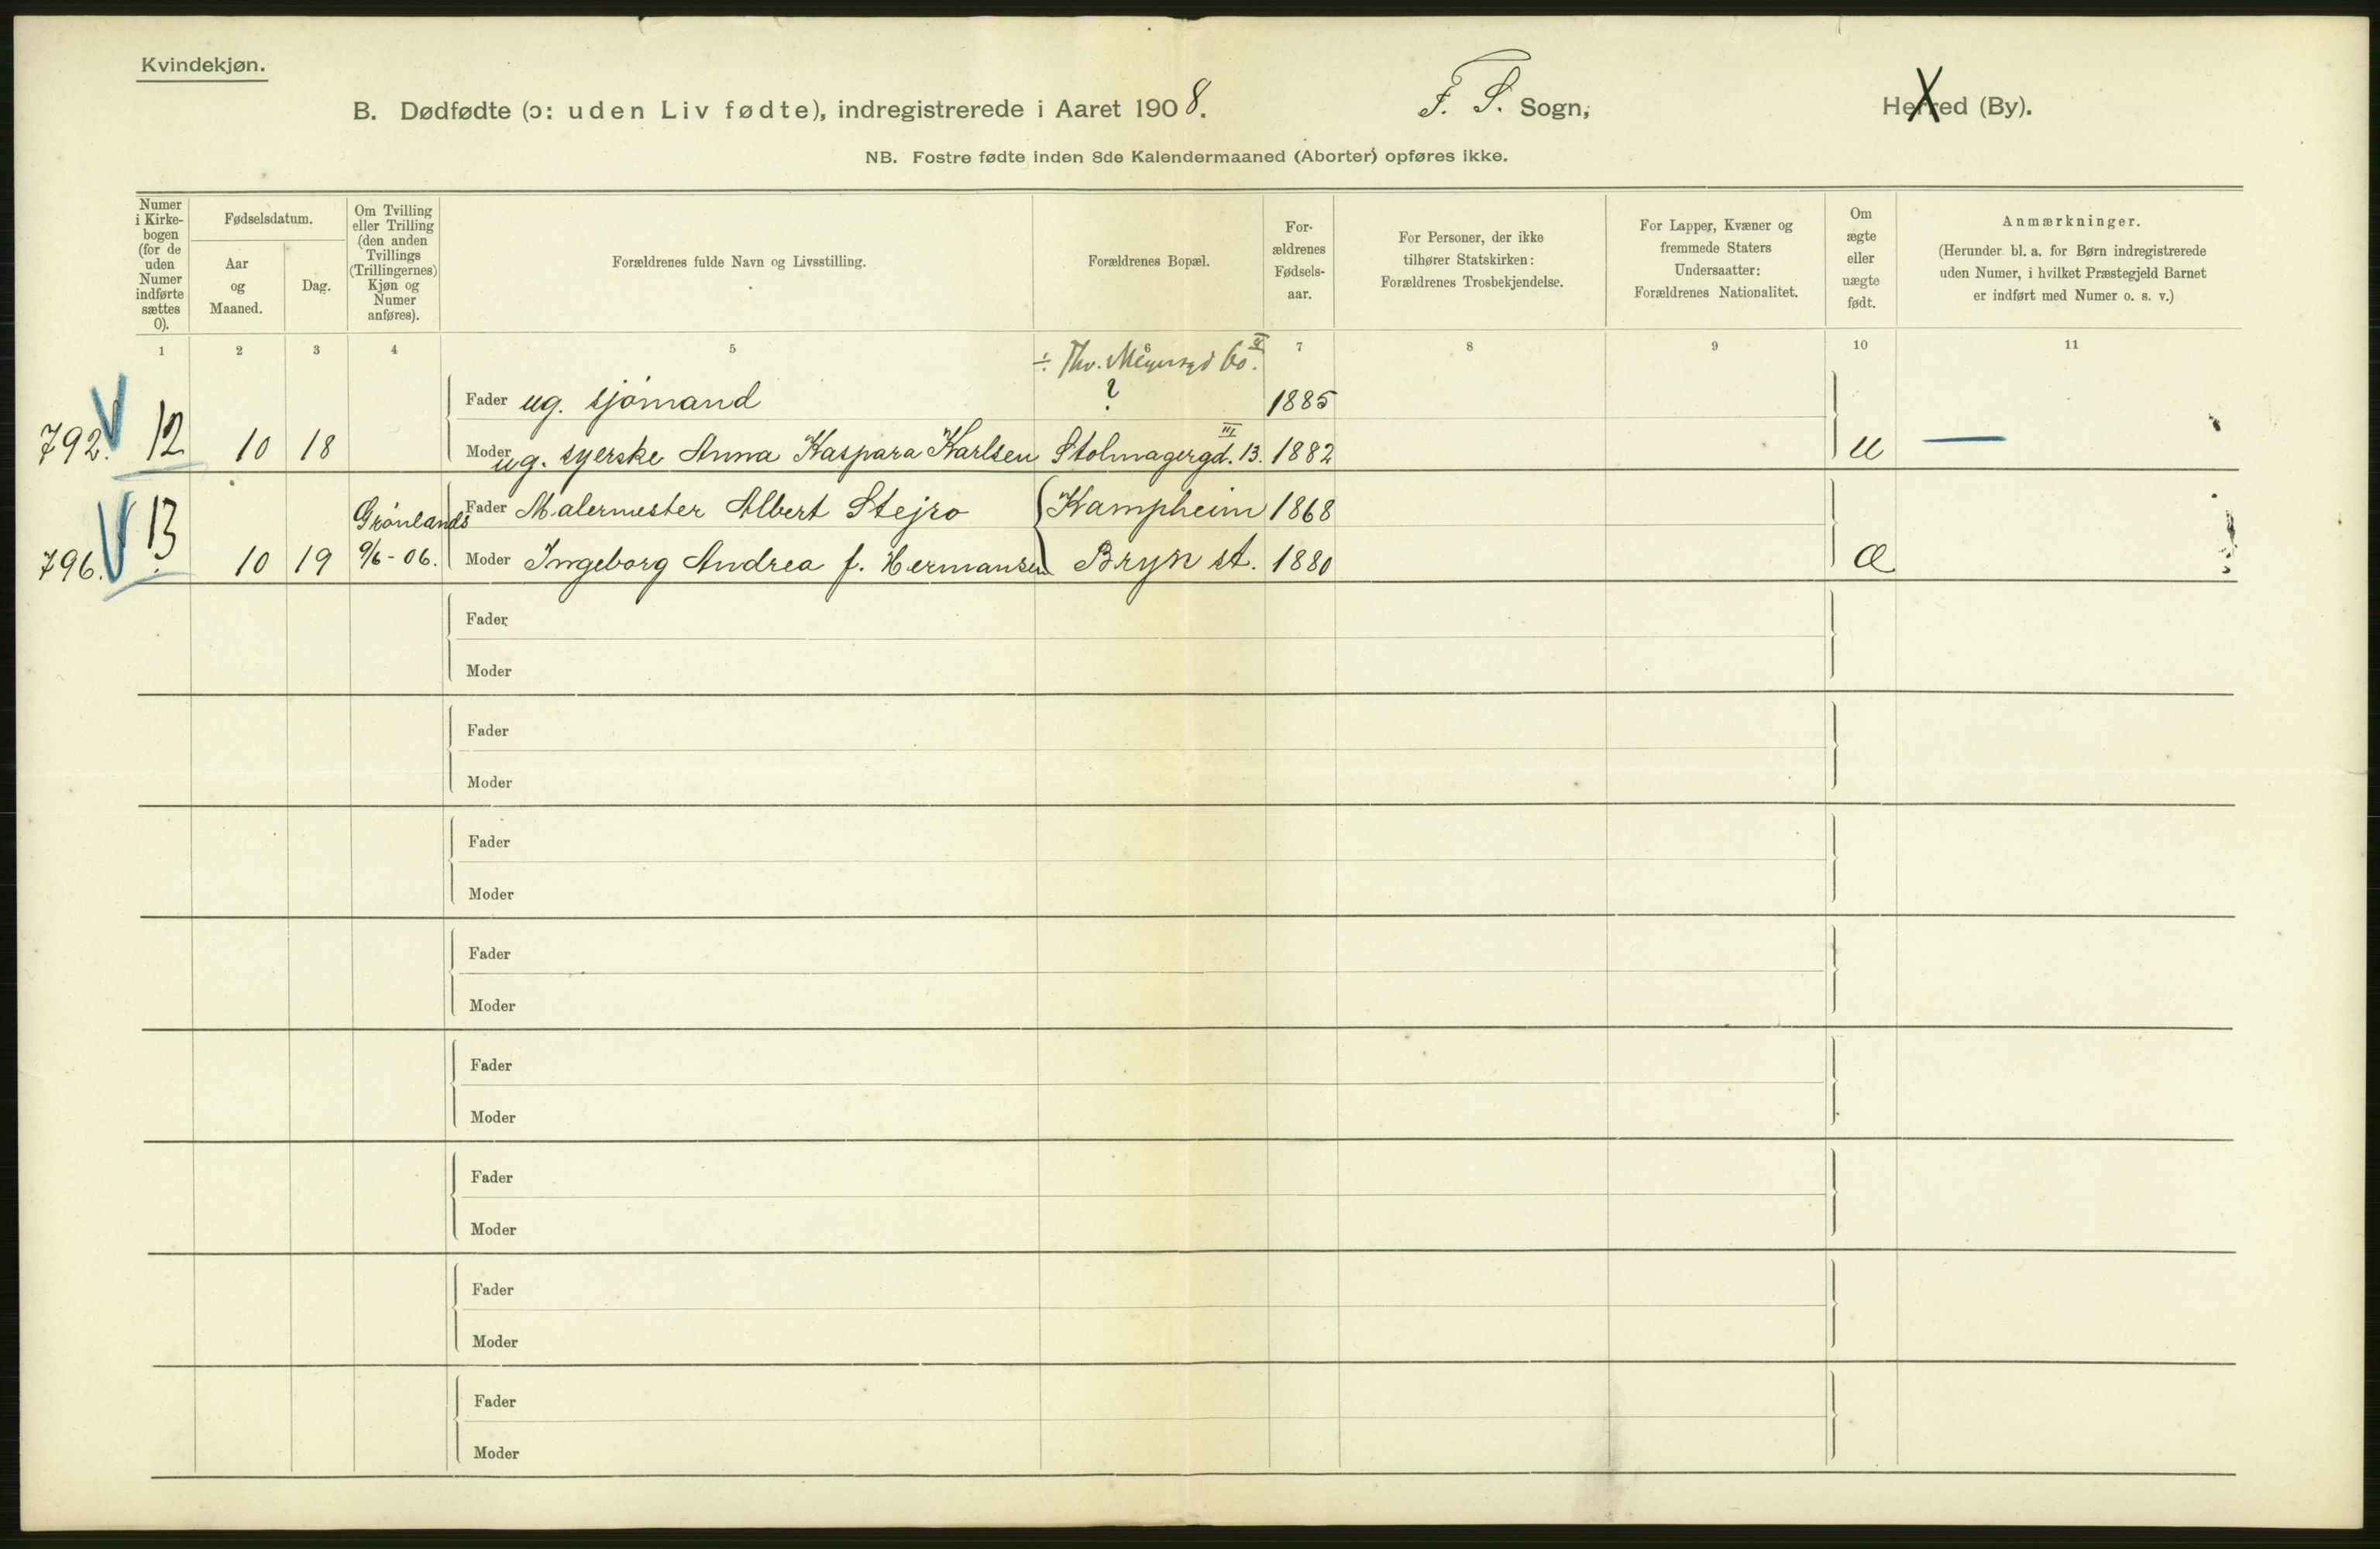 Kvindekjøn.
B. Dødfødte (ɔ: uden Liv fødte), indregistrerede i Aaret 1908. F. S. Sogn, Herred (By).
NB. Fostre fødte inden 8de Kalendermaaned (Aborter) opføres ikke.
Numer i Kirke-bogen (for de uden Numer indførte sættes 0).
Fødselsdatum.
Aar og Maaned.
Dag.
Om Tvilling eller Trilling (den anden Tvillings (Trillingernes) Kjøn og Numer anføres).
Forældrenes fulde Navn og Livsstilling.
Forældrenes Bopæl.
For-ældrenes Fødsels-aar.
For Personer, der ikke tilhører Statskirken: Forældrenes Trosbekjendelse.
For Lapper, Kvæner og fremmede Staters Undersaatter: Forældrenes Nationalitet.
Om ægte eller uægte født.
Anmærkninger.
(Herunder bl. a. for Børn indregistrerede uden Numer, i hvilket Præstegjeld Barnet er indført med Numer o. s. v.)
1 2 3 4 5 6 7 8 9 10 11
÷ Thv. Meyersgd 60. V
Fader ug. sjømand ? 1885
792. 12 10 18 Moder ug. syerske Anna Kaspara Karlsen Stolmagergd. 13. III 1882 U —
13 Grønlands Fader Malermester Albert Stejro Kampheim 1868
796. 10 19 9/6-06. Moder Ingeborg Andrea f. Hermansen Bryn st. 1880 Æ
Fader
Moder
Fader
Moder
Fader
Moder
Fader
Moder
Fader
Moder
Fader
Moder
Fader
Moder
Fader
Moder